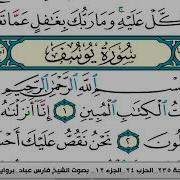 كُلٌّ عَلَيْهِ وَمَا رَبُّكَ بِغَٰفِلٍ عَمَّا
سُورَةُ يُوسُفَ
بِسْمِ ٱللَّهِ ٱلرَّحْمَٰنِ ٱلرَّحِيمِ
ٱلْكِتَٰبِ ٱلْمُبِينِ ١ إِنَّآ أَنزَلْنَٰهُ
٢ نَحْنُ نَقُصُّ عَلَيْكَ
٢٣٥ الحزب ٢٤ الجزء ١٢ . بصوت الشيخ فارس عباد